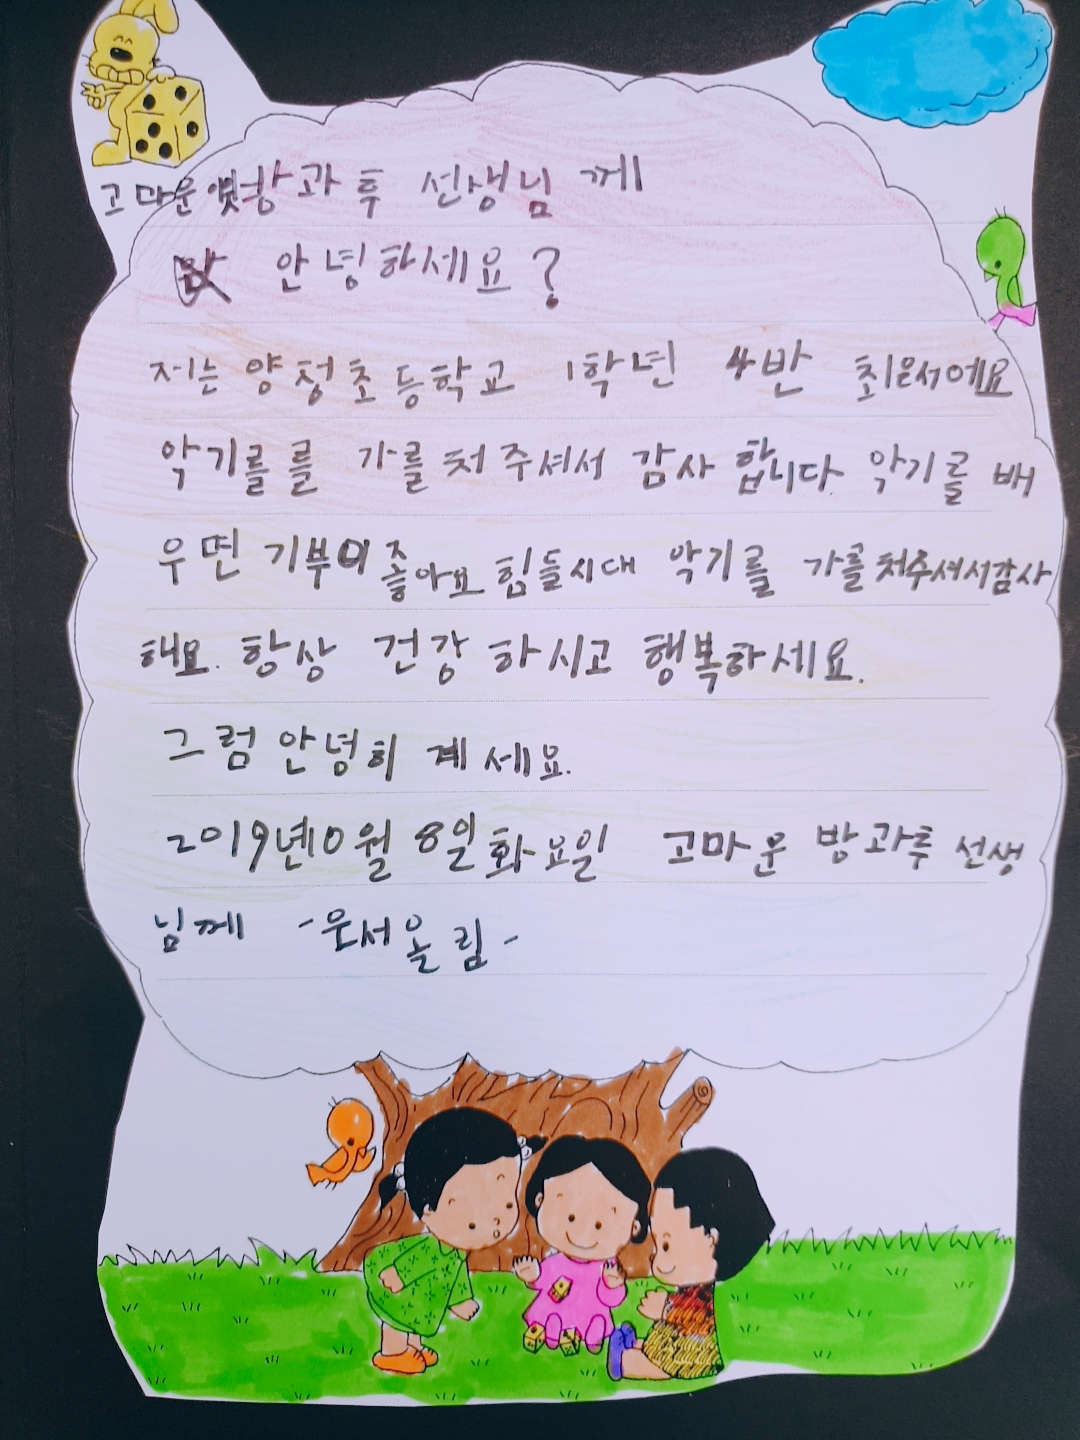 고마운 방과후 선생님께
안녕하세요?
저는 양정초등학교 1학년 4반 최은서에요
악기를를 가를처주셔서 감사합니다. 악기를 배
우면 기부이 좋아요 힘들시대 악기를 가를처주셔서감사
해요. 항상 건강하시고 행복하세요.
그럼 안녕히 계세요.
2019년10월 8일화요일 고마운 방과후 선생
님께 -은서올림-